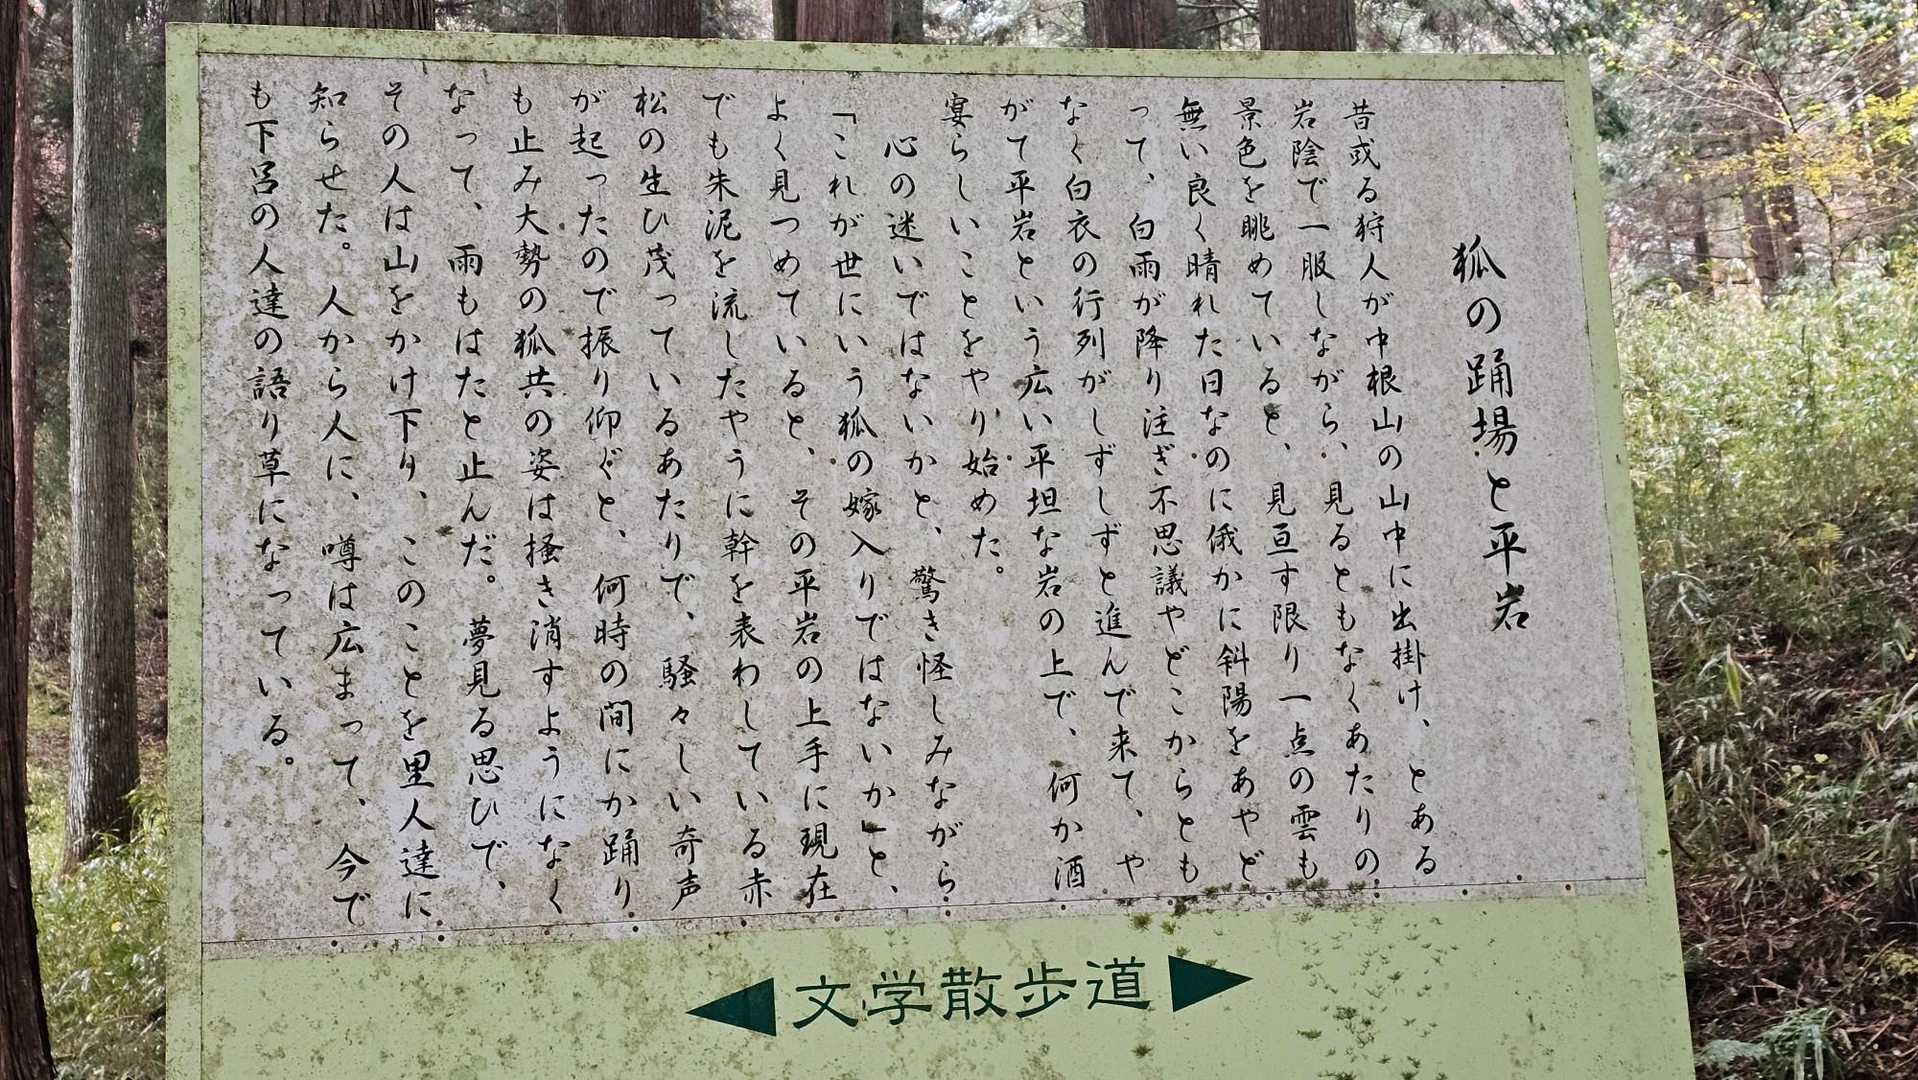 狐の踊場と平岩
昔或る狩人が中根山の山中に出掛け、とある
岩陰で一服しながら、見るともなくあたりの
景色を眺めていると、見亘す限り一点の雲も
無い良く晴れた日なのに俄かに斜陽をあやど
って、白雨が降り注ぎ不思議やどこからとも
なく白衣の行列がしずしずと進んで来て、や
がて平岩という広い平坦な岩の上で、何か酒
宴らしいことをやり始めた。
心の迷いではないかと、驚き怪しみながら
「これが世にいう狐の嫁入りではないか」と、
よく見つめていると、その平岩の上手に現在
でも朱泥を流したやうに幹を表わしている赤
松の生ひ茂っているあたりで、騒々しい奇声
が起ったので振り仰ぐと、何時の間にか踊り
も止み大勢の狐共の姿は掻き消すようになく
なって、雨もはたと止んだ。夢見る思ひで、
その人は山をかけ下り、このことを里人達に
知らせた。人から人に、噂は広まって、今で
も下呂の人達の語り草になっている。
文学散歩道